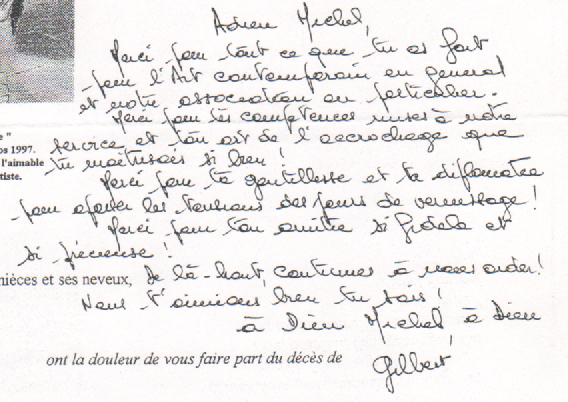 Adieu Michel,
Merci pour tout ce que tu as fait
pour l'Art contemporain en général
et notre association en particulier.
Merci pour tes compétences mises à notre
service et ton art de l'accrochage que
tu maîtrisais si bien !
Merci pour ta gentillesse et ta diplomatie
pour apaiser les tensions des jours de vernissage !
Merci pour ton amitié si fidèle et
si précieuse !
De là-haut, continues à nous aider !
Nous t'aimions bien tu sais !
à Dieu Michel à Dieu
Gilbert
e "
os 1997.
l'aimable
tiste.
nièces et ses neveux,
ont la douleur de vous faire part du décès de